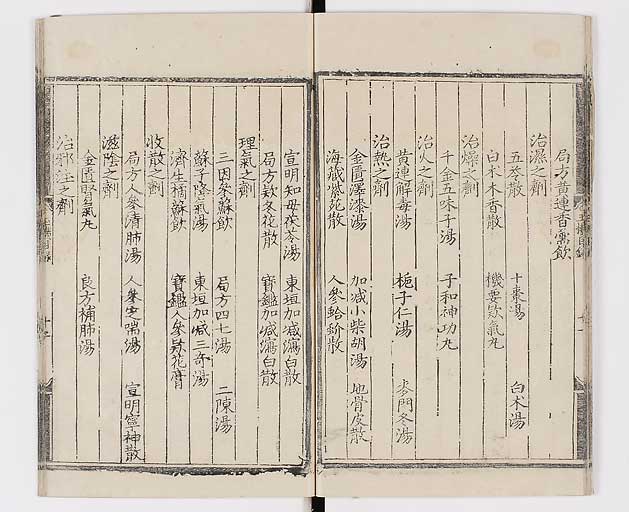 局方黄連香薷飲
治濕之劑
五苓散 十棗湯 白朮湯
白朮木香散 機要欬氣丸
治燥之劑
千金五味子湯 子和神功丸
治火之劑
黄連解毒湯 梔子仁湯 麥門冬湯
治熱之劑
金匱澤漆湯 加减小柴胡湯 地骨皮散
海藏紫菀散 人參蛤蚧散
宣明知母茯苓湯 東垣加减瀉白散
局方欵冬花散 寶鑑加减瀉白散
理氣之劑
三因參蘇飲 局方四七湯 二陳湯
蘇子降氣湯 東垣加减三奇湯
濟生橘蘇飲 寶鑑人參欵花膏
收散之劑
局方人參清肺湯 人參定喘湯 宣明寧神散
滋陰之劑
金匱腎氣丸 良方補肺湯
治邪注之劑